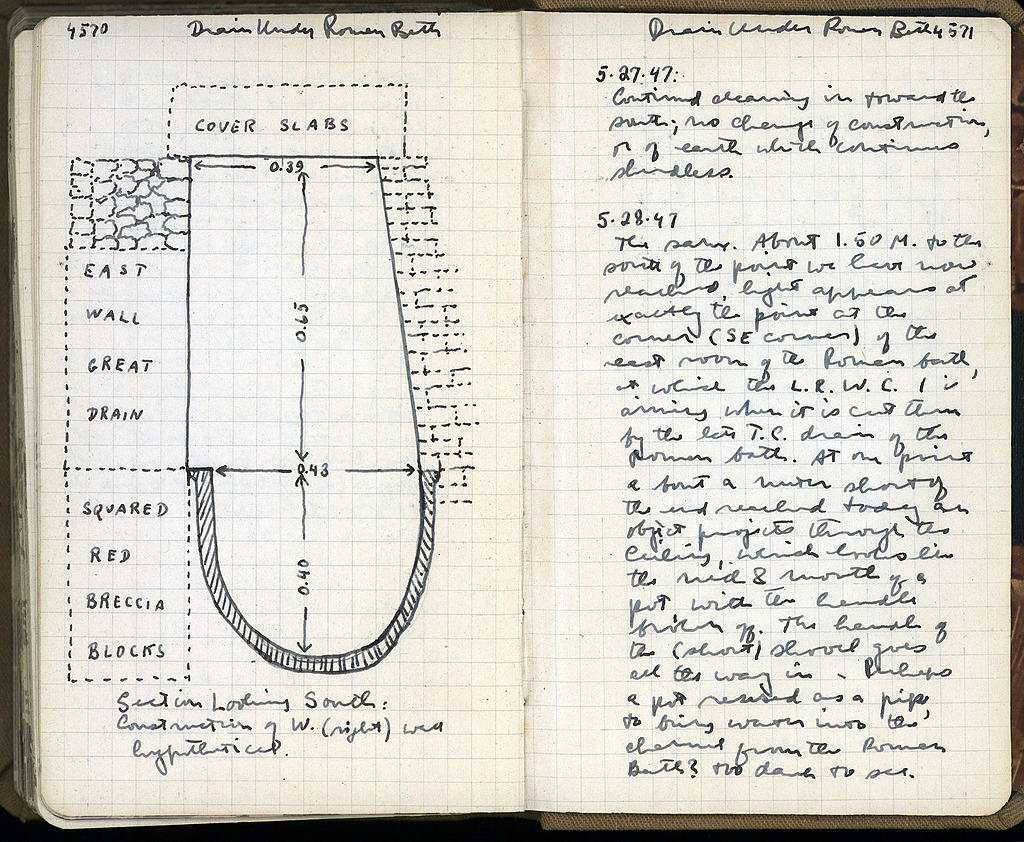 4570 Drain Under Roman Bath
COVER SLABS
0.39
EAST
WALL
GREAT
DRAIN
0.65
0.43
SQUARED
RED
BRECCIA
BLOCKS
0.40
Section Looking South:
Construction of W. (right) wall
hypothetical.
Drain Under Roman Bath 4571
5.27.47:
Continued cleaning in toward the
south; no change of construction,
or of earth which continues
sherdless.
5.28.47
The same. About 1.50 M. to the
south of the point we have now
reached, light appears at
exactly the point at the
corner (SE corner) of the
east room of the Roman bath,
at which the L.R.W.C. 1 is
aiming when it is cut thru
by the late T.C. drain of the
Roman bath. At one point
about a meter short of
the end reached today an
object projects through the
ceiling, which looks like
the and mouth of a
pot, with the handle
broken off. The handle of
the (short) shovel goes
all the way in. Perhaps
a pot reused as a pipe,
to bring water into the
channel from the Roman
Bath? too dark to see.